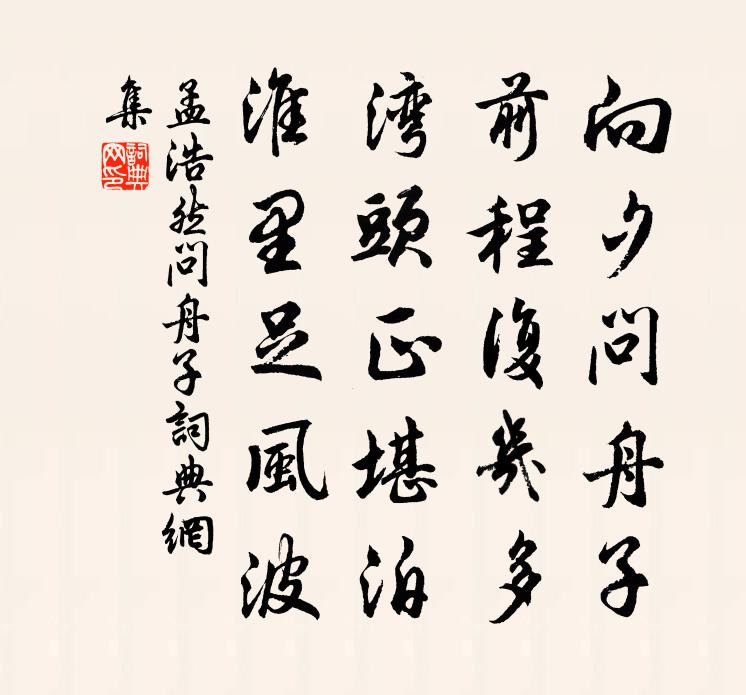 向夕問舟子
前程復幾多
湾頭正堪泊
淮里足風波
孟浩然問舟子詞典網
集
詞典
网印